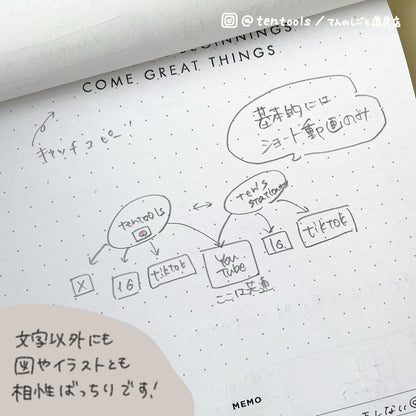 @tentools/てんのしごと道具店
BEGINNINGS
COME GREAT THINGS
キャッチコピー!
基本的には
ショート動画のみ
tentools
ten's
stationery
X
IG
tiktok
You
Tube
IG
tiktok
ここは共通
文字以外にも
図やイラストとも
相性ばっちりです!
MEMO